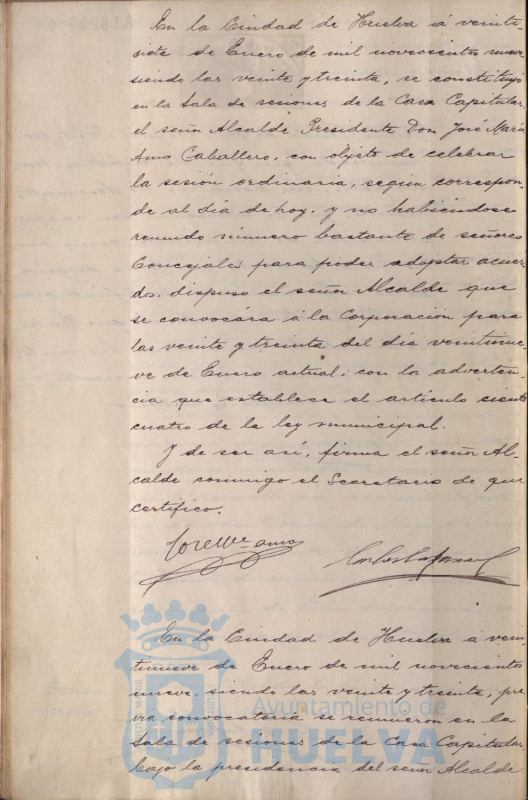 En la Ciudad de Huelva á veinti-
siete de Enero de mil novecientos nueve
siendo las veinte y treinta, se constituyó
en la Sala de sesiones de la Casa Capitular,
el señor Alcalde Presidente Don José María
Amo Caballero, con objeto de celebrar
la sesión ordinaria, según correspon-
de al día de hoy, y no habiéndose
reunido número bastante de señores
Concejales para poder adoptar acuer-
dos, dispuso el señor Alcalde que
se convocára á la Corporación para
las veinte y treinta del día veintinue-
ve de Enero actual, con la adverten-
cia que establece el artículo ciento
cuatro de la ley municipal.
Y de ser así, firma el señor Al-
calde conmigo el Secretario de que
certifico.
En la Ciudad de Huelva á vein-
tinueve de Enero de mil novecientos
nueve, siendo las veinte y treinta, pré-
via convocatoria se reunieron en la
Sala de sesiones de la Casa Capitular,
bajo la presidencia del señor Alcalde
Ayuntamiento de
HUELVA